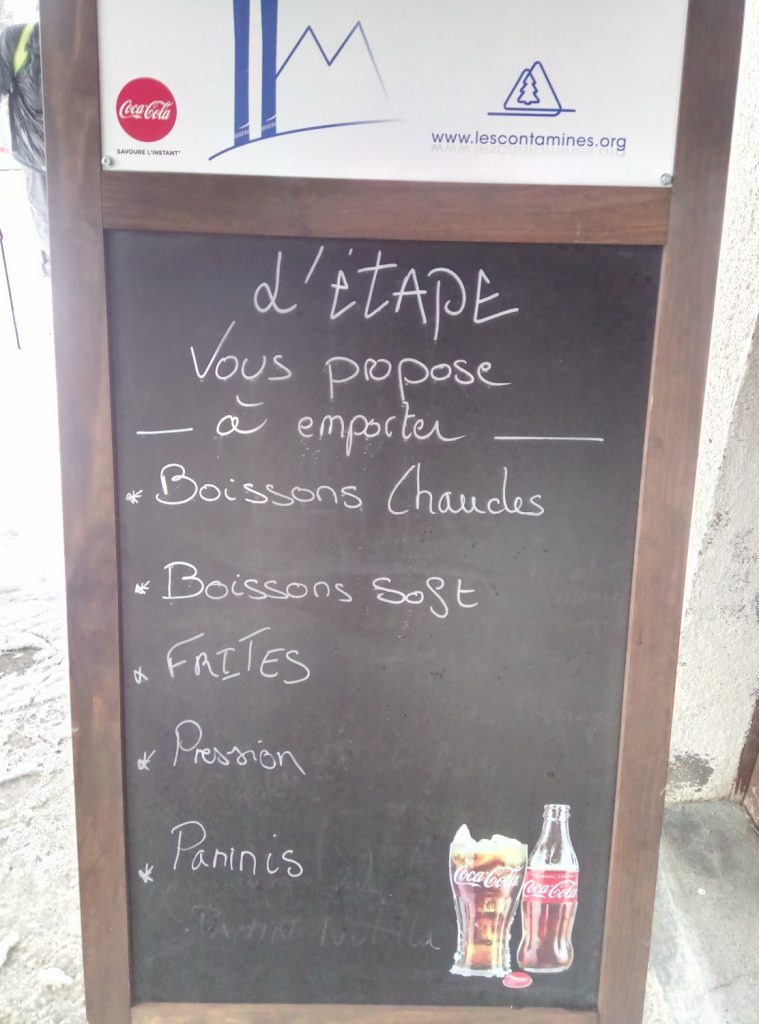 Coca-Cola
SAVOURE L'INSTANT
www.lescontamines.org
L'ÉTAPE
Vous propose
à emporter
* Boissons Chaudes
* Boissons soft
* FRITES
* Pression
* Paninis
PANINI Nutella
Coca-Cola
Coca-Cola